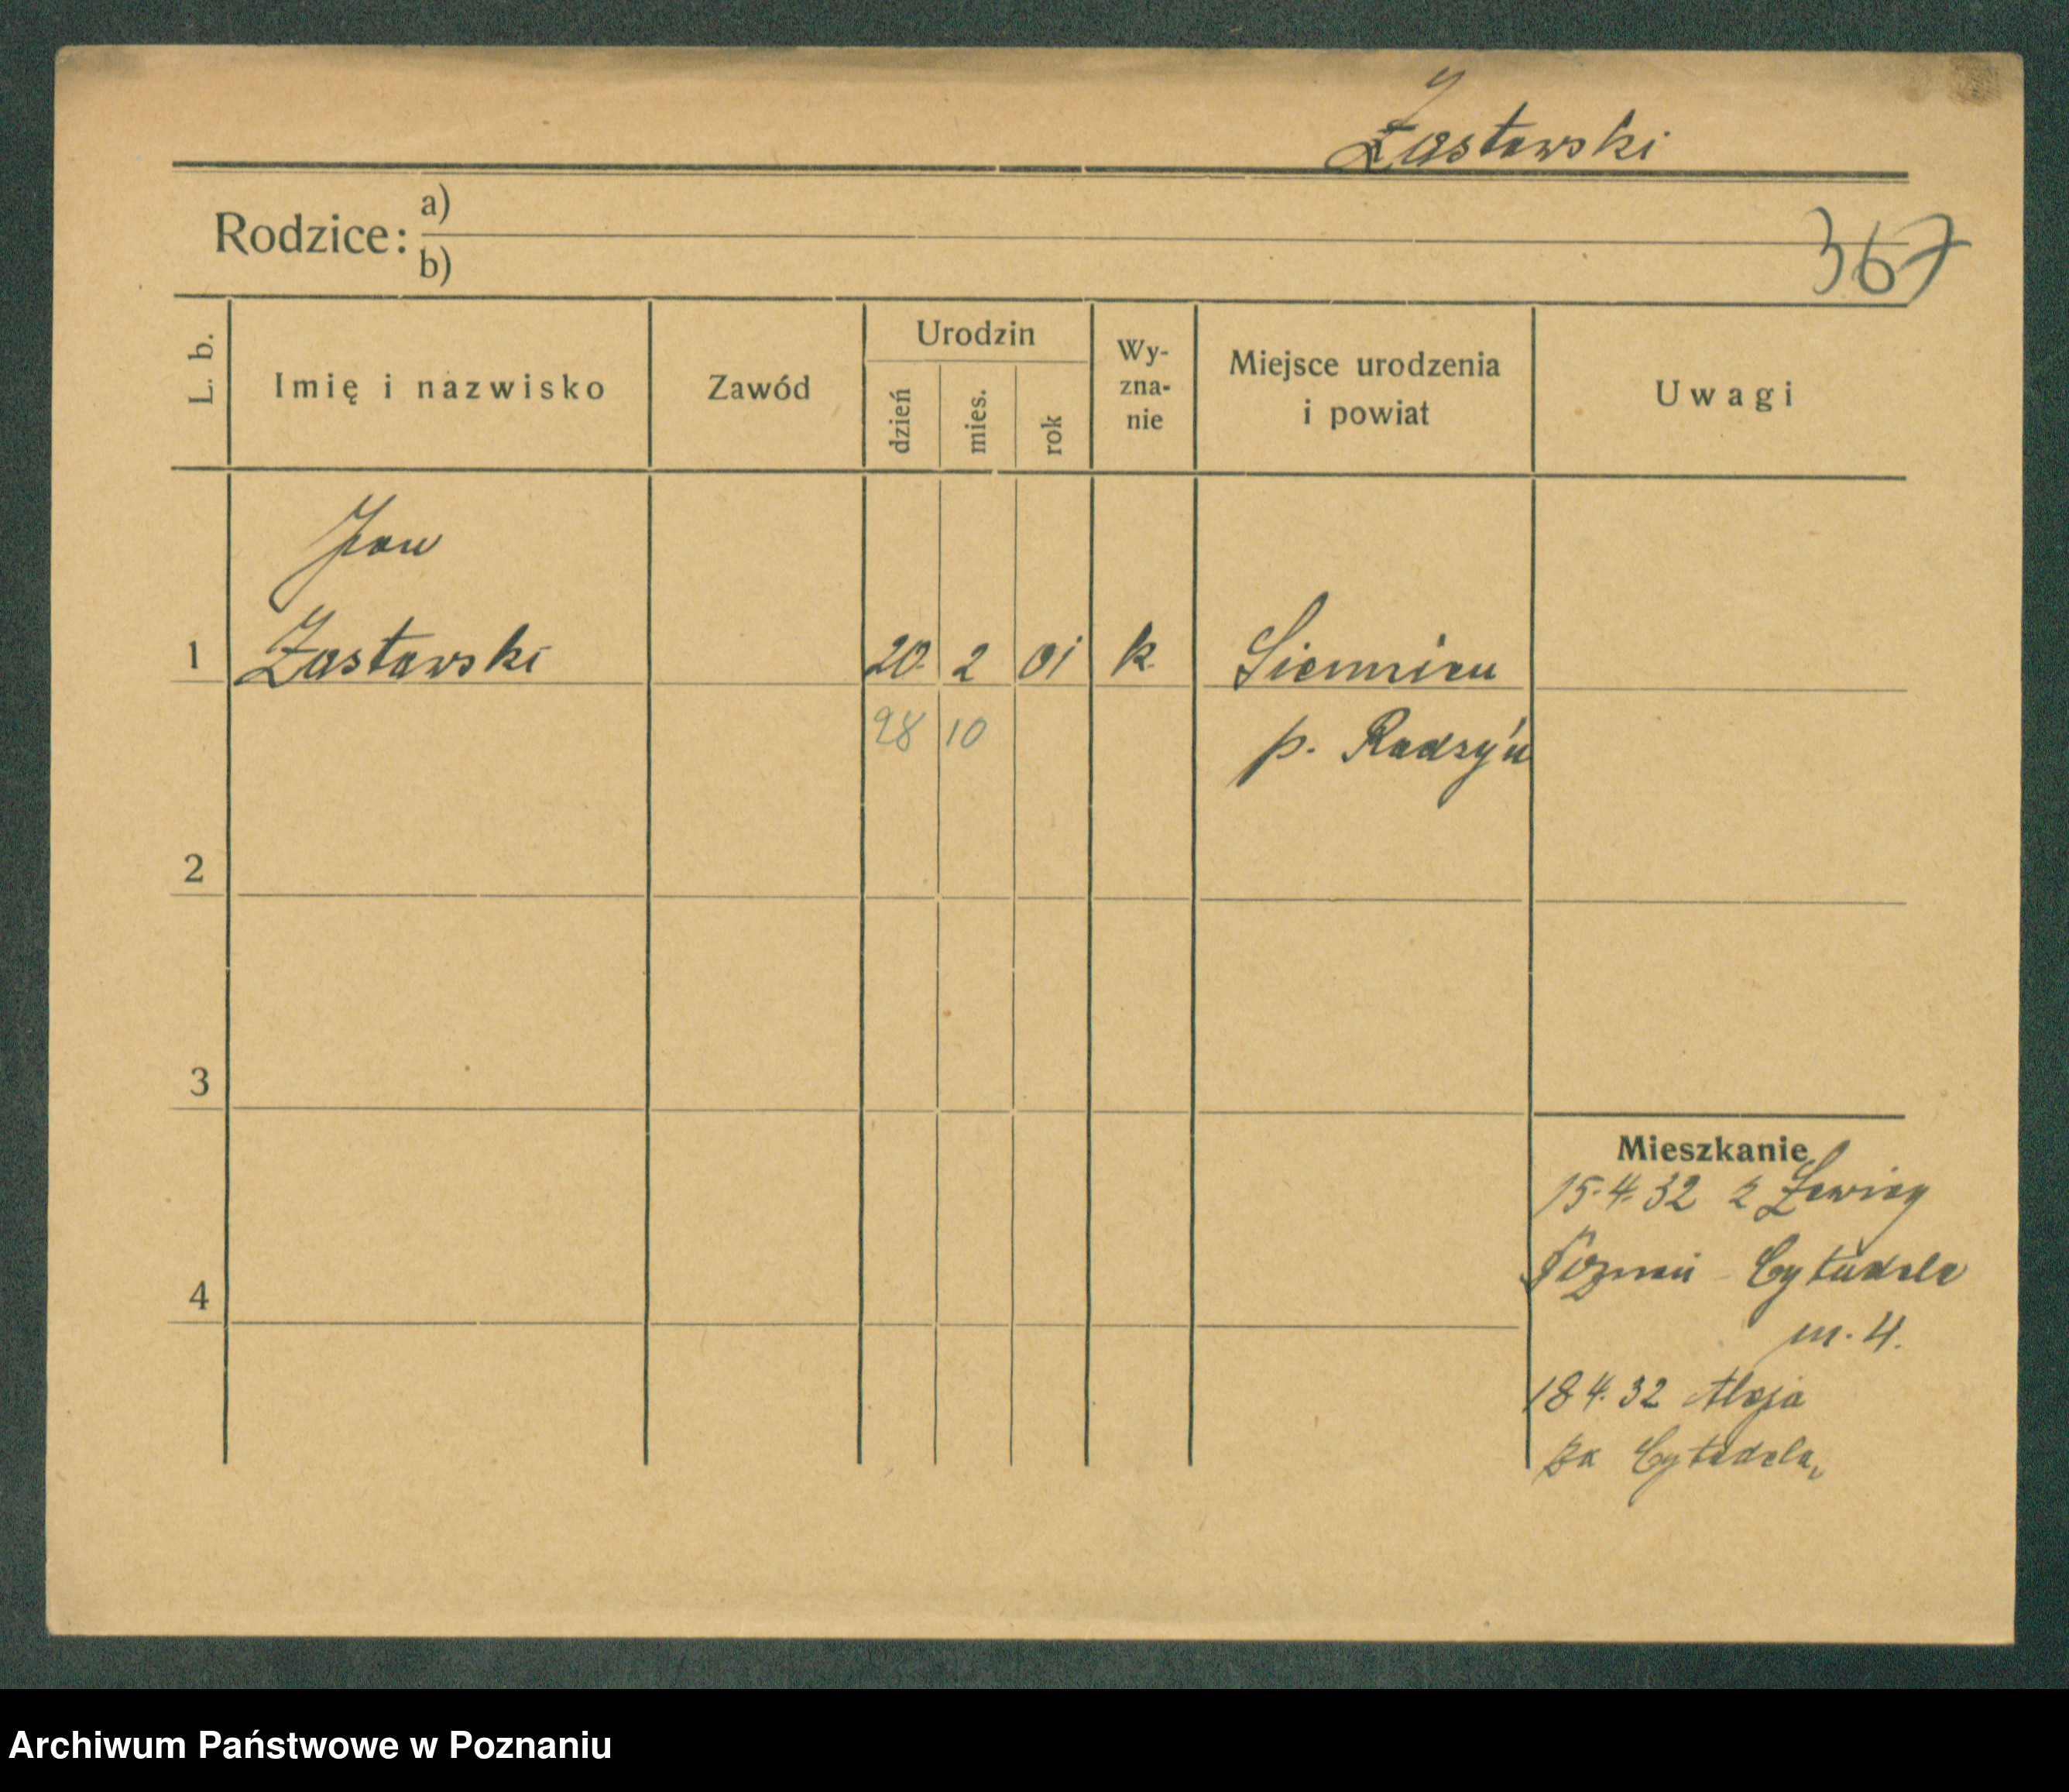 Zastawski
Rodzice: a)
b)
367
L. b.
Imię i nazwisko
Zawód
Urodzin
dzień
mies.
rok
Wy-
zna-
nie
Miejsce urodzenia
i powiat
Uwagi
Jan
1 Zastawski 20. 2 01 k.
28 10
p. Radzyń
2
3
4
Mieszkanie
15.4.32 z
Poznań - Cytadela
m. 4.
18 4. 32 Aleja
za Cytadelą
Archiwum Państwowe w Poznaniu